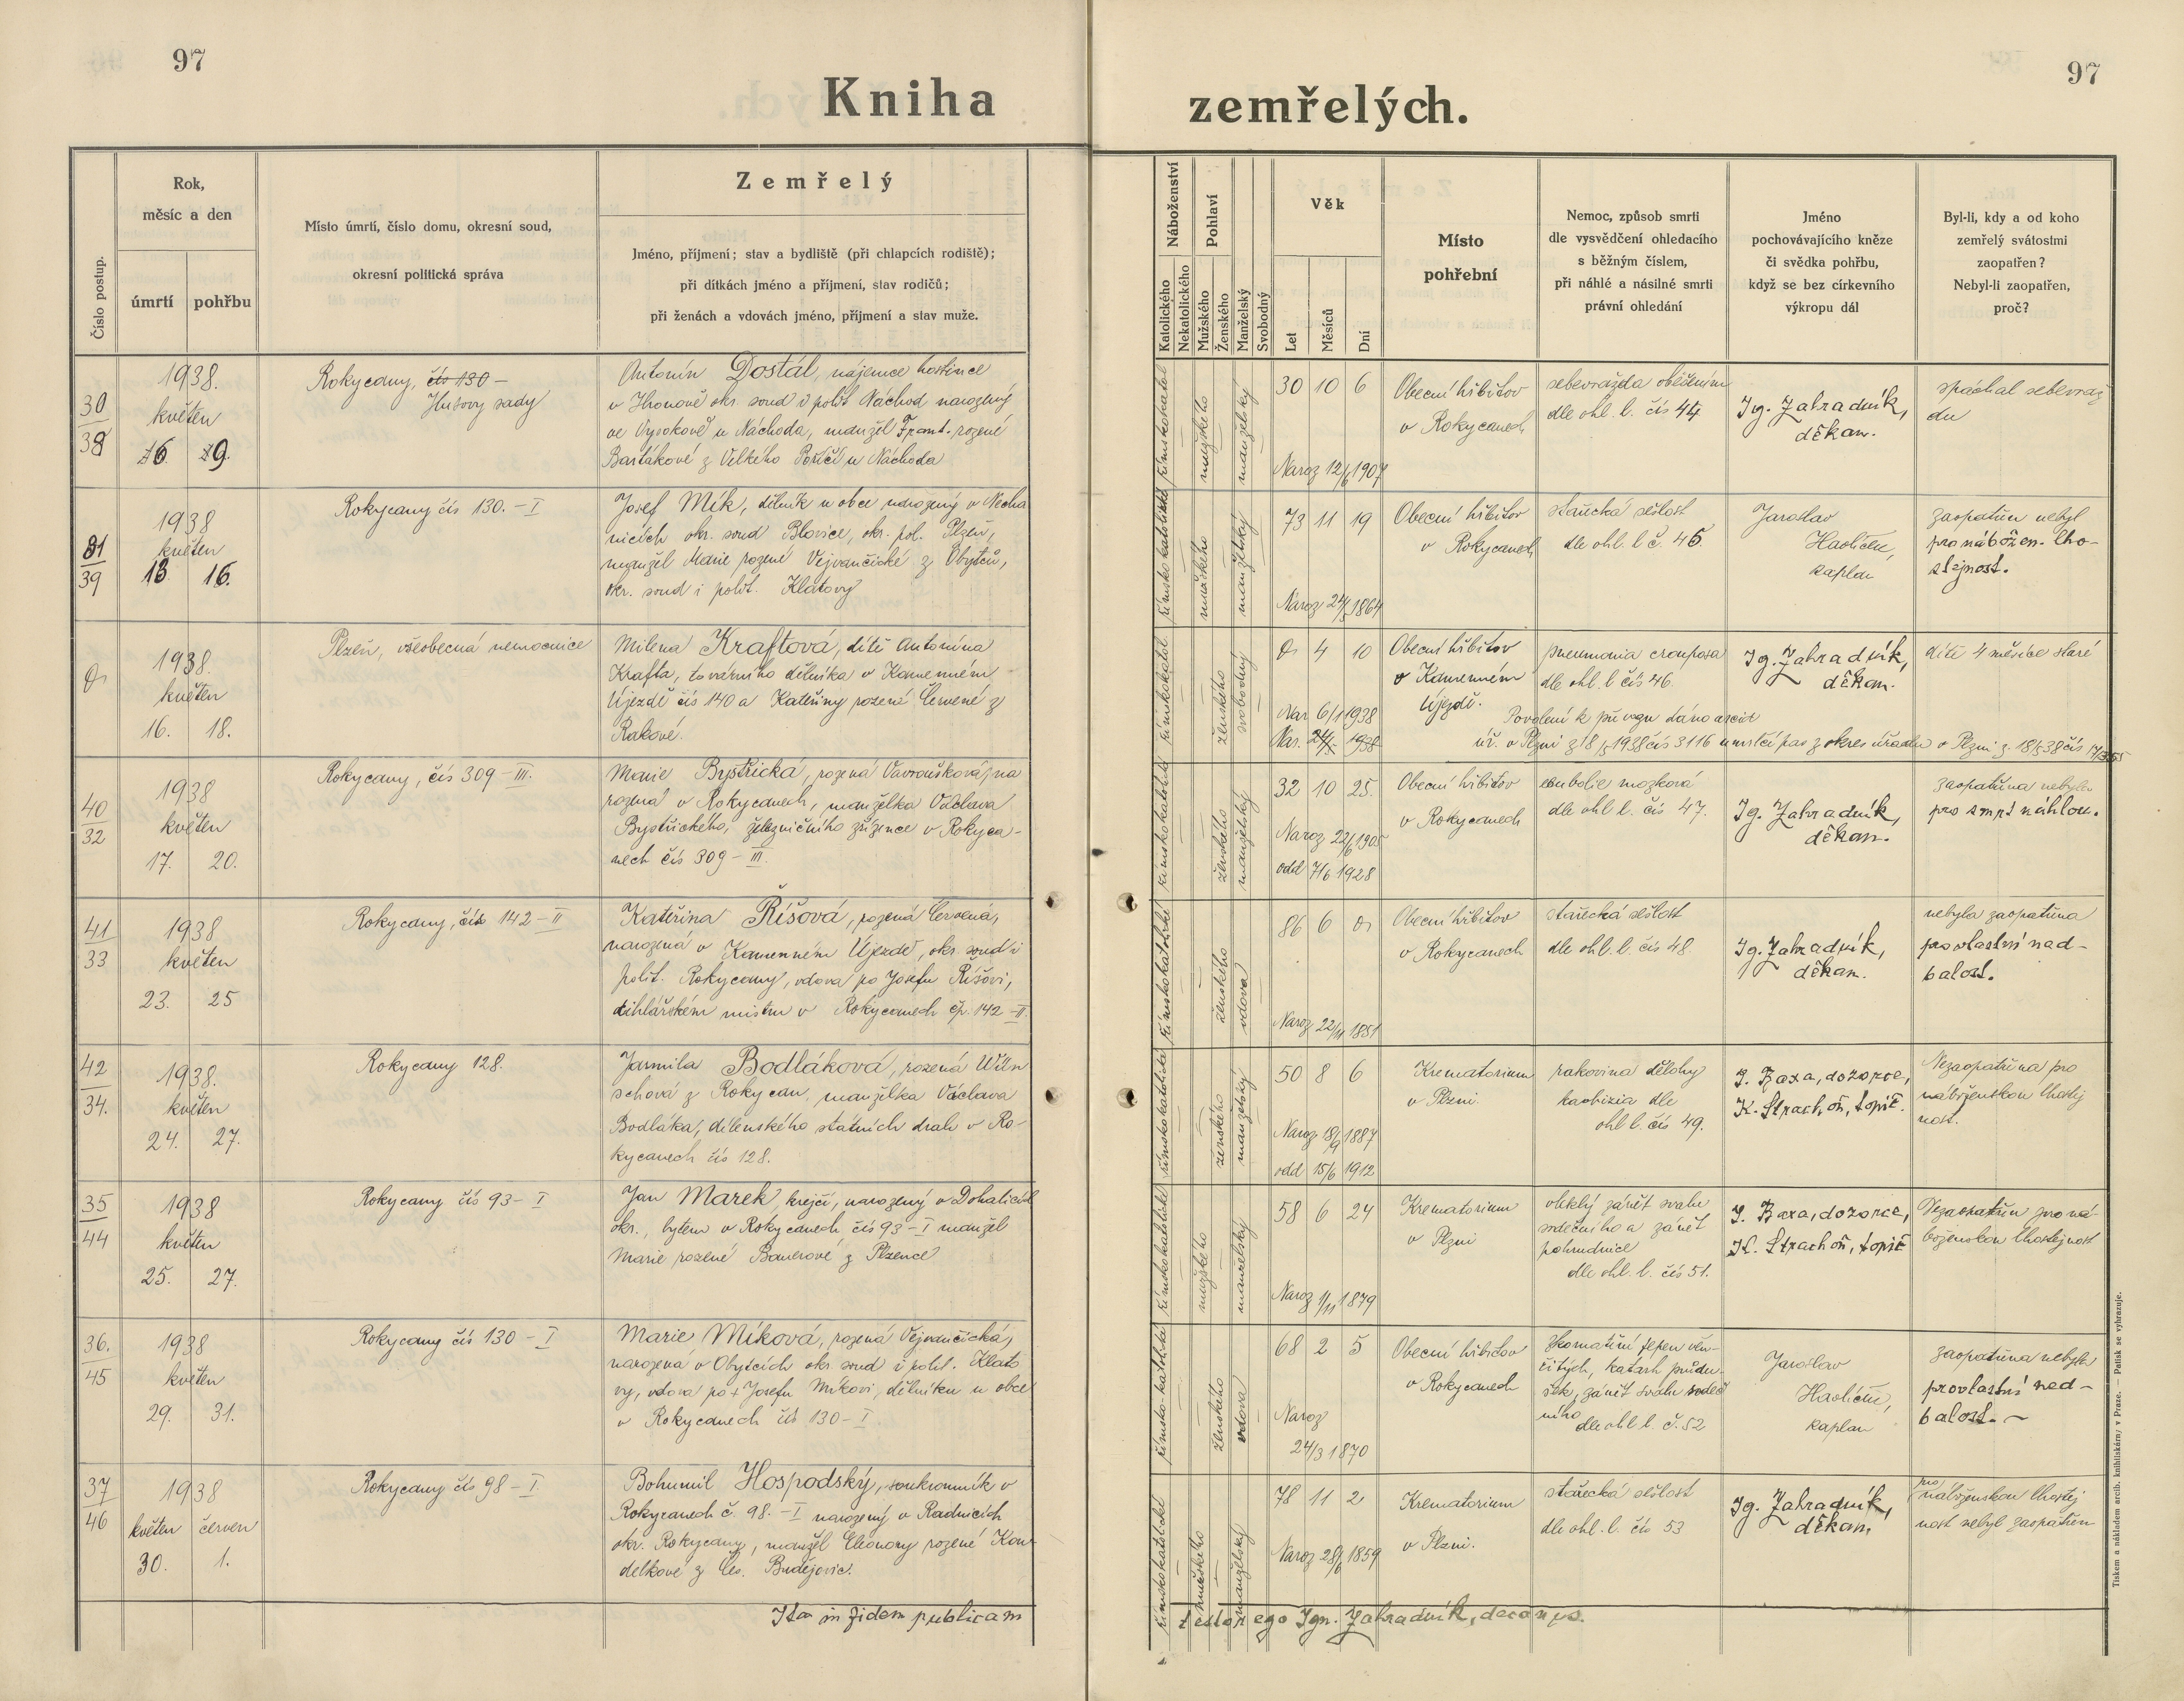 97
97
Kniha zemřelých.
Číslo postup.
Rok,
měsíc a den
úmrtí
pohřbu
Místo úmrtí, číslo domu, okresní soud,
okresní politická správa
Zemřelý
Jméno, příjmení; stav a bydliště (při chlapcích rodiště);
při dítkách jméno a příjmení, stav rodičů;
při ženách a vdovách jméno, příjmení a stav muže.
Náboženství
Katolického
Nekatolického
Pohlaví
Mužského
Ženského
Manželský
Svobodný
Věk
Let
Měsíců
Dní
Místo
pohřební
Nemoc, způsob smrti
dle vysvědčení ohledacího
s běžným číslem,
při náhlé a násilné smrti
právní ohledání
Jméno
pochovávajícího kněze
či svědka pohřbu,
když se bez církevního
výkropu dál
Byl-li, kdy a od koho
zemřelý svátostmi
zaopatřen?
Nebyl-li zaopatřen,
proč?
30
38
1938.
květen
16. 19.
Rokycany, čís 130 –
Husovy sady
Antonín Dostál, nájemce hostince
v Hronově okr. soud i polit Náchod narozený
ve Vysokově u Náchoda, manžel Frant. rozené
Bartákové z Velkého Poříčí u Náchoda
římskokatol
mužského
manželský
30 10 6
Naroz 12/6 1907
Obecní hřbitov
v Rokycanech
sebevražda oběšením
dle ohl. l. čís 44
Ig. Zahradník,
děkan.
spáchal sebevraž
du
31
39
1938
květen
13. 16.
Rokycany čís 130. – I
Josef Mík, dělník u obce narozený v Necha
nicích okr. soud Blovice, okr. pol. Plzeň,
manžel Marie rozené Vejvančické z Obytců,
okr. soud i polit. Klatovy
římsko katolické
mužského
manželský
73 11 19
Naroz 24/5 1864
Obecní hřbitov
v Rokycanech
stařecká sešlost
dle ohl. l č. 45.
Jaroslav
Havlíček,
kaplan
zaopatřen nebyl
pro nábožen. lho-
stejnost.
1938.
květen
16. 18.
Plzeň, všeobecná nemocnice
Milena Kraftová, dítě Antonína
Krafta, továrního dělníka v Kamenném
Újezdě čís 140 a Kateřiny rozené Červené z
Rakové.
římskokatol.
ženského
svobodný
0 4 10
Nar 6/1 1938
Nar. 24/5 1938
Obecní hřbitov
v Kamenném
Újezdě.
pneumonia crouposa
dle ohl. l čís 46.
Ig. Zahradník,
děkan.
dítě 4 měsíce staré
Povolení k převozu dáno
úř. v Plzni z 18/5 1938 čís 3116 a umrlčí pas z okres úřadu v Plzni z 18/5 38 čís
40
32
1938
květen
17. 20.
Rokycany, čís 309 – III.
Marie Bystřická, rozená Vavroušková, na
rozená v Rokycanech, manželka Václava
Bystřického, železničního zřízence v Rokyca-
nech čís 309 – III.
římskokatolické
ženského
manželský
32 10 25.
Naroz 22/6 1905
odd 7/6 1928
Obecní hřbitov
v Rokycanech
embolie mozková
dle ohl l. čís 47.
Ig. Zahradník,
děkan.
zaopatřena nebyla
pro smrt náhlou.
41
33
1938
květen
23. 25
Rokycany, čís 142 – II
Kateřina Říšová, rozená Červená,
narozená v Kamenném Újezdě, okr. soud i
polit. Rokycany, vdova po Josefu Říšovi,
cihlářském mistru v Rokycanech čp. 142 – II.
římskokatolické
ženského
vdova
86 6 0
Naroz 22/11 1851
Obecní hřbitov
v Rokycanech
stařecká sešlost
dle ohl. l. čís 48
Ig. Zahradník,
děkan.
nebyla zaopatřena
pro vlastní ned-
balost.
42
34.
1938.
květen
24. 27.
Rokycany 128.
Jarmila Bodláková, rozená Wün
schová z Rokycan, manželka Václava
Bodláka, dílenského státních drah v Ro-
kycanech čís 128.
římskokatolické
ženského
manželský
50 8 6
Naroz 18/9 1887
odd 15/6 1912
Krematorium
v Plzni.
rakovina dělohy
kachexia dle
ohl l. čís 49.
J. Baxa, dozorce,
K. Strachoň, topič.
Nezaopatřena pro
náboženskou lhostej
nost.
35
44
1938
květen
25. 27.
Rokycany čís 93 – I
Jan Marek, krejčí, narozený v Dohalicích
okr., bytem v Rokycanech čís 93 – I manžel
Marie rozené Bauerové z Plzence
římskokatolické
mužského
manželský
58 6 24
Naroz 1/11 1879
Krematorium
v Plzni
vleklý zánět svalu
srdečního a zánět
pohrudnice
dle ohl. l. čís 51.
J. Baxa, dozorce,
K. Strachoň, topič
Nezaopatřen pro ná-
boženskou lhostejnost
36.
45
1938
květen
29. 31.
Rokycany čís 130 – I
Marie Míková, rozená Vejvančická,
narozená v Obytcích okr soud i polit. Klato
vy, vdova po + Josefu Míkovi, dělníku u obce
v Rokycanech čís 130 – I
římsko-katolické
ženského
vdova
68 2 5
Naroz
24/3 1870
Obecní hřbitov
v Rokycanech
zkornatění tepen věn-
čitých, katarh průdu-
šek, zánět svalu srdeč
ního
dle ohl l. č. 52
Jaroslav
Havlíček,
kaplan
zaopatřena nebyla
pro vlastní ned-
balost. –
37
46
1938
květen červen
30. 1.
Rokycany čís 98 – I.
Bohumil Hospodský, soukromník v
Rokycanech č. 98. – I narozený v Radnicích
okr. Rokycany, manžel Eleonory rozené Kou-
delkové z Čes. Budějovic.
římskokatolické
mužského
manželský
78 11 2
Naroz 28/6 1859
Krematorium
v Plzni.
stařecká sešlost
dle ohl. l. čís 53
Ig. Zahradník,
děkan
pro
náboženskou lhostej
nost nebyl zaopatřen
Ita in fidem publicam
testor ego Ign. Zahradník, decanus.
Tiskem a nákladem arcib. knihtiskárny v Praze. — Patisk se vyhrazuje.